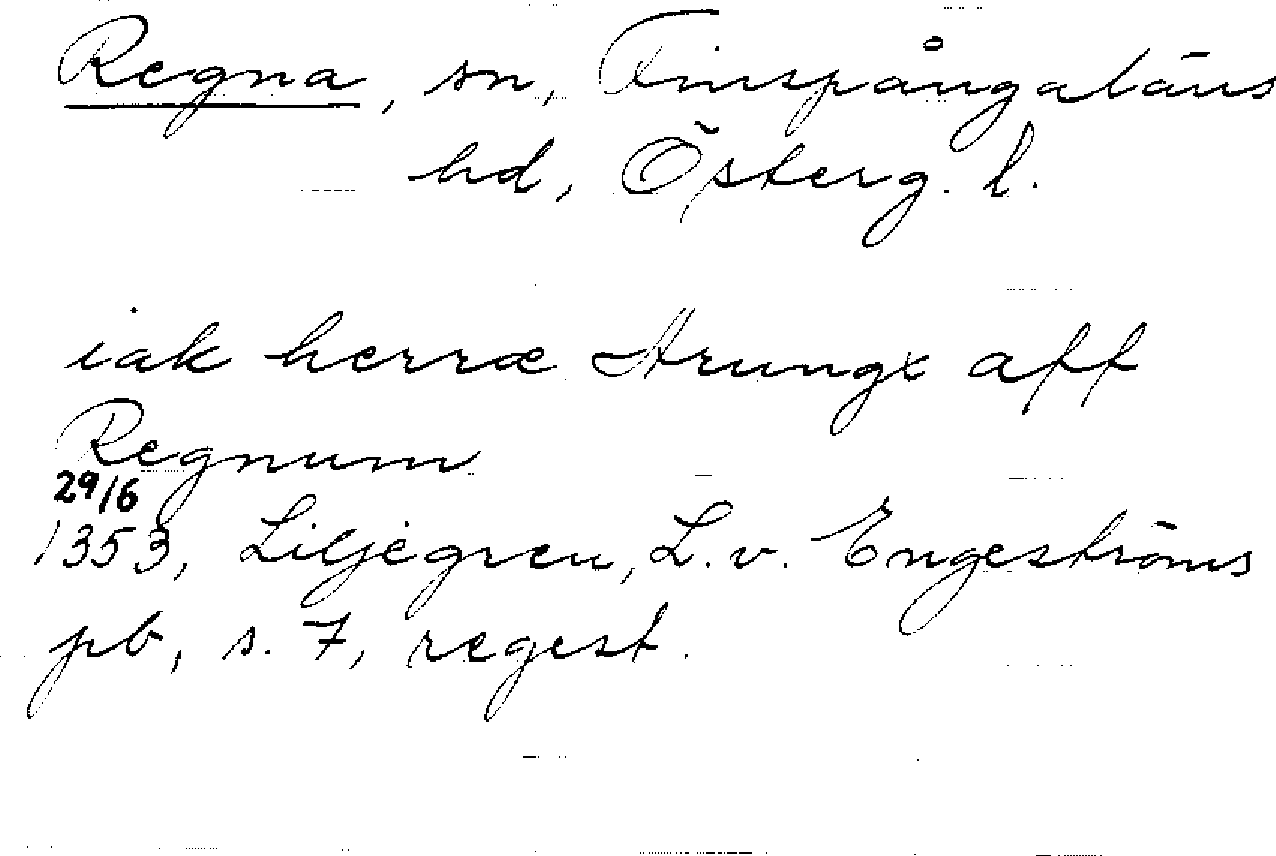 Regna, sn, Finspångaläns
hd, Österg. l.
iak herræ Strunge aff
Regnum
29/6
1353, Liljegren, L. v. Engeströms
pb, s. 7, regest.